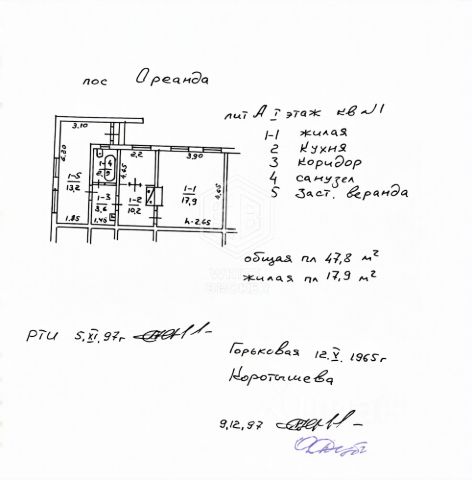 пос Ореанда
лит А I этаж кв №1
1-1 жилая
2 кухня
3 коридор
4 санузел
5 Заст. веранда
3,10
2,2
3,90
6,80
1-5
13,2
1-4
4,45
1-1
17,9
4,65
1-3
3,6
1-2
10,2
1,85
1,45
h-2.65
общая пл 47,8 м²
жилая пл 17,9 м²
РТИ 5.XI.97г
Горьковая 12.V.1965г
Коротышева
9.12.97